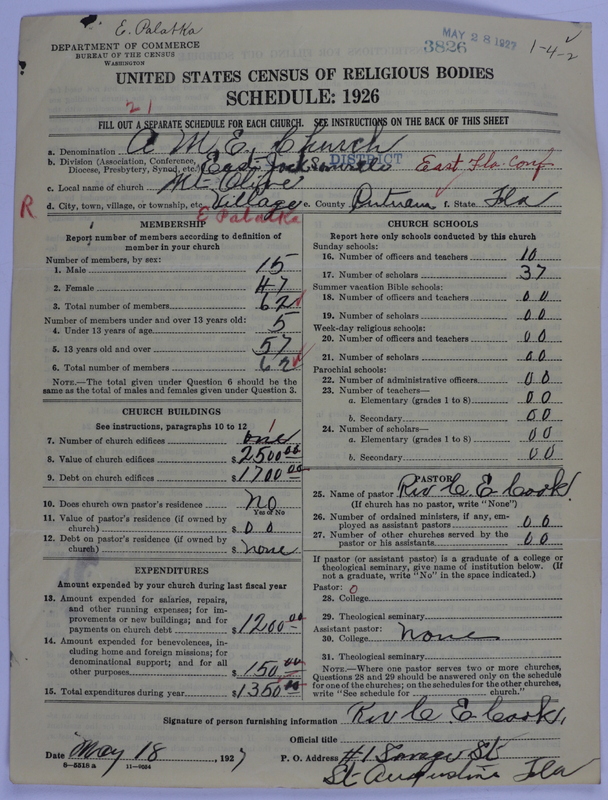 E. Palatka
DEPARTMENT OF COMMERCE
BUREAU OF THE CENSUS
WASHINGTON
MAY 28 1927
3826
1-4-2
UNITED STATES CENSUS OF RELIGIOUS BODIES
SCHEDULE: 1926
21
FILL OUT A SEPARATE SCHEDULE FOR EACH CHURCH. SEE INSTRUCTIONS ON THE BACK OF THIS SHEET
a. Denomination A. M. E. Church
b. Division (Association, Conference, Diocese, Presbytery, Synod, etc.) East Jacksonville DISTRICT East Fla. Conf
c. Local name of church Mt Olive
d. City, town, village, or township, etc. Village e. County Putnam f. State Fla
R E Palatka
MEMBERSHIP
Report number of members according to definition of
member in your church
Number of members, by sex:
1. Male 15
2. Female 47
3. Total number of members 62
Number of members under and over 13 years old:
4. Under 13 years of age 5
5. 13 years old and over 57
6. Total number of members 62
NOTE.—The total given under Question 6 should be
same as the total of males and females given under Question 3.
CHURCH BUILDINGS
See instructions, paragraphs 10 to 12
7. Number of church edifices one 1
8. Value of church edifices $2500.00
9. Debt on church edifices $1700.00
10. Does church own pastor's residence No
Yes or No
11. Value of pastor's residence (if owned by
church) $ 0 0
12. Debt on pastor's residence (if owned by
church) $ none
EXPENDITURES
Amount expended by your church during last fiscal year
13. Amount expended for salaries, repairs,
and other running expenses; for im-
provements or new buildings; and for
payments on church debt $1200.00
14. Amount expended for benevolences, in-
cluding home and foreign missions; for
denominational support; and for all
other purposes $150.00
15. Total expenditures during year $1350.00
CHURCH SCHOOLS
Report here only schools conducted by this church
Sunday schools:
16. Number of officers and teachers 10
17. Number of scholars 37
Summer vacation Bible schools:
18. Number of officers and teachers 0 0
19. Number of scholars 0 0
Week-day religious schools:
20. Number of officers and teachers 0 0
21. Number of scholars 0 0
Parochial schools:
22. Number of administrative officers 0 0
23. Number of teachers—
a. Elementary (grades 1 to 8) 0 0
b. Secondary 0 0
24. Number of scholars—
a. Elementary (grades 1 to 8) 0 0
b. Secondary 0 0
PASTOR
25. Name of pastor Rev C. E. Cook
(If church has no pastor, write "None")
26. Number of ordained ministers, if any, em-
ployed as assistant pastors 0 0
27. Number of other churches served by the
pastor or his assistants 0 0
If pastor (or assistant pastor) is a graduate of a college or
theological seminary, give name of institution below. (If
not a graduate, write "No" in the space indicated.)
Pastor: 0
28. College
29. Theological seminary
Assistant pastor:
30. College none
31. Theological seminary
NOTE.—Where one pastor serves two or more churches,
Questions 28 and 29 should be answered only on the schedule
for one of the churches; on the schedules for the other churches,
write "See schedule for church."
Signature of person furnishing information Rev C E Cook,
Official title
Date May 18, 1927 P. O. Address #1 Savage St
8—5518 a 11—9554 St Augustine Fla